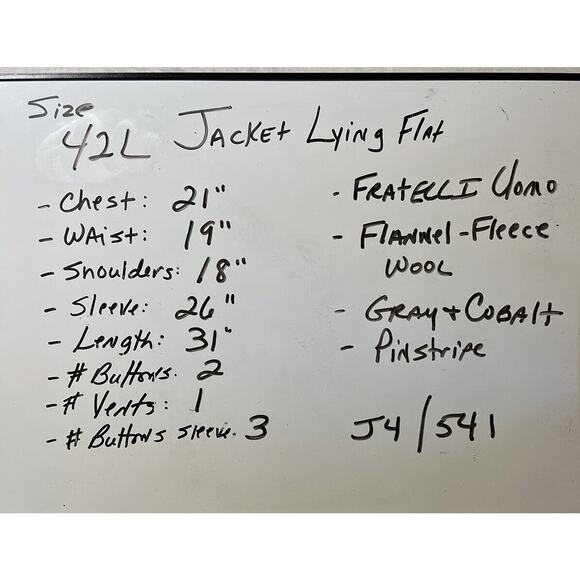 Size
42L Jacket Lying Flat
- Chest: 21"
- Waist: 19"
- Shoulders: 18"
- Sleeve: 26"
- Length: 31"
- # Buttons: 2
- # Vents: 1
- # Buttons sleeve: 3
- FRATELLI Uomo
- Flannel-Fleece
Wool
- Gray + Cobalt
- Pinstripe
J4/541